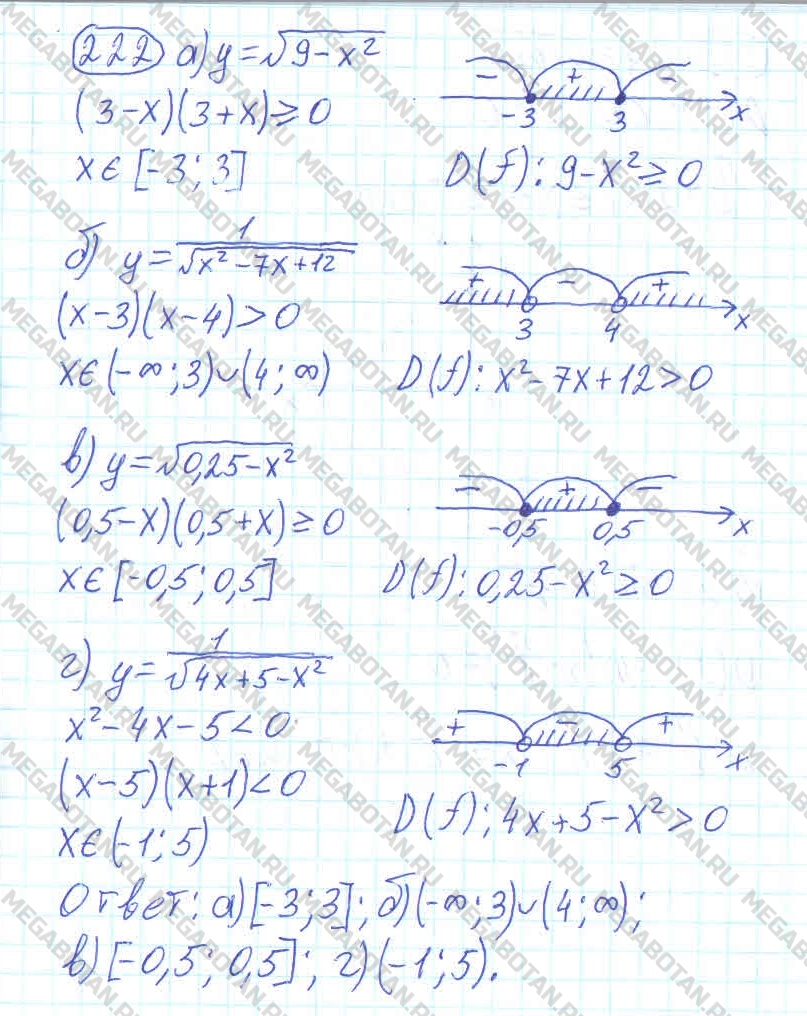 222 а) y = √(9-x²)
- + -
-3 3 x
(3-x)(3+x) ≥ 0
x ∈ [-3; 3]
D(f): 9-x² ≥ 0
б) y = 1/√(x²-7x+12)
+ - +
3 4 x
(x-3)(x-4) > 0
x ∈ (-∞; 3) ∪ (4; ∞)
D(f): x²-7x+12 > 0
в) y = √(0,25-x²)
- + -
-0,5 0,5 x
(0,5-x)(0,5+x) ≥ 0
x ∈ [-0,5; 0,5]
D(f): 0,25-x² ≥ 0
г) y = 1/√(4x+5-x²)
x²-4x-5 < 0
+ - +
-1 5 x
(x-5)(x+1) < 0
D(f): 4x+5-x² > 0
x ∈ (-1; 5)
Ответ: а) [-3; 3]; б) (-∞; 3) ∪ (4; ∞);
в) [-0,5; 0,5]; г) (-1; 5).
MEGABOTAN.RU